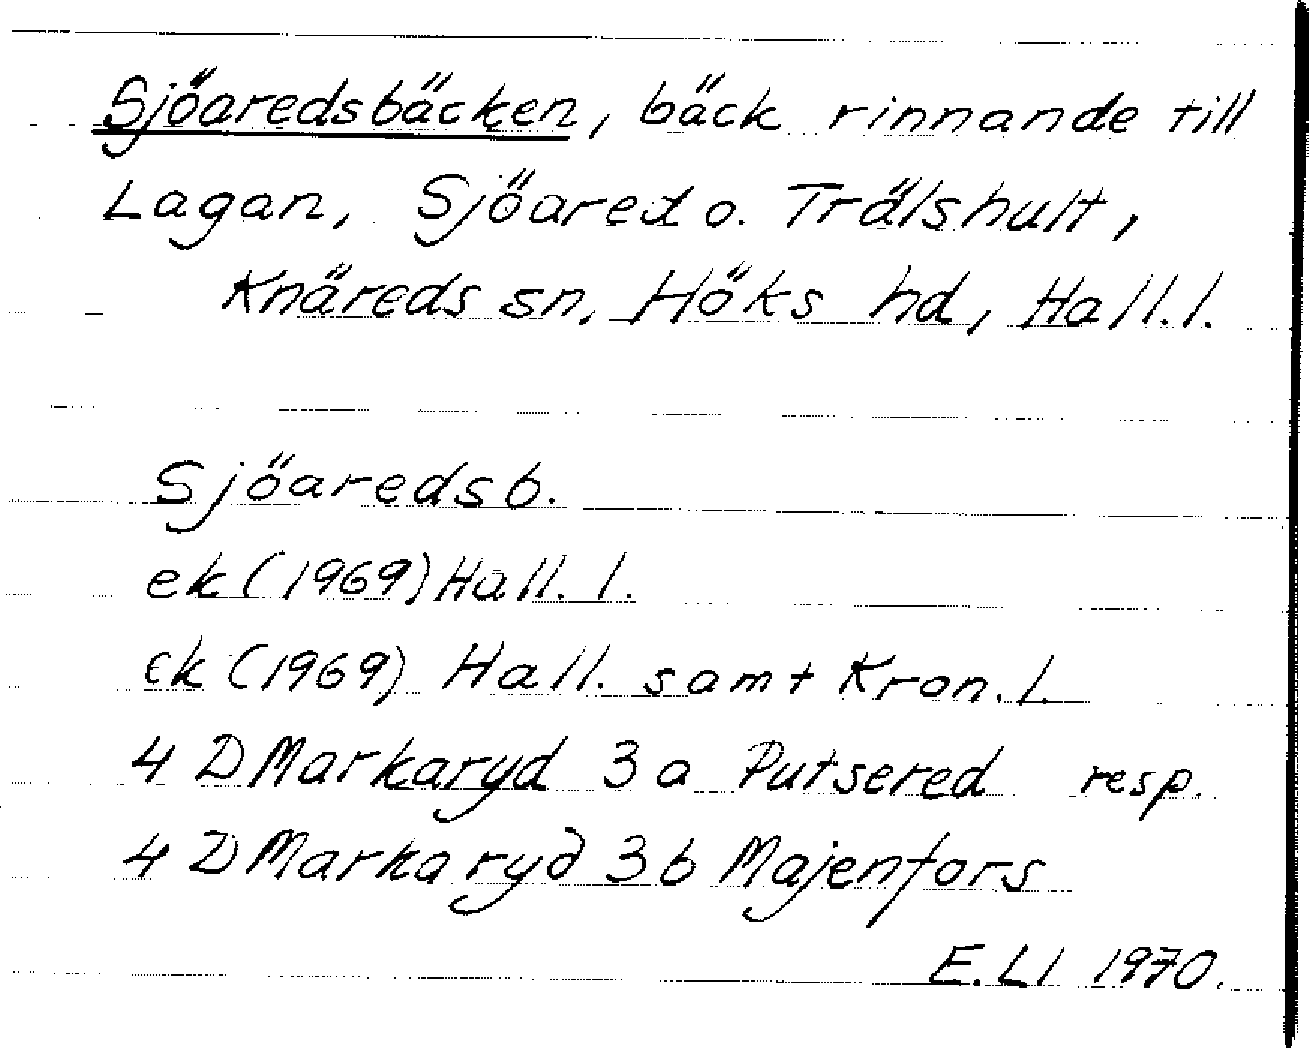 Sjöaredsbäcken, bäck rinnande till
Lagan, Sjöared o. Trälshult,
Knäreds sn, Höks hd, Hall.l.
Sjöaredsb.
ek (1969) Hall. l.
ek (1969) Hall. samt Kron.l.
4 D Markaryd 3 a Putsered resp.
4 D Markaryd 3 b Majenfors
E.Ll 1970.